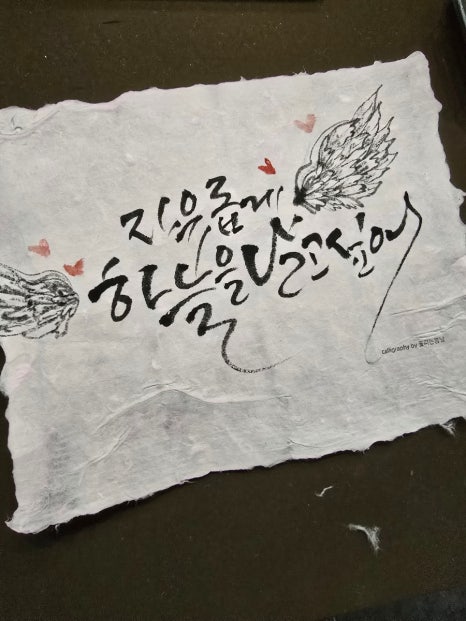 자유롭게
하늘을 날고 싶어
calligraphy by